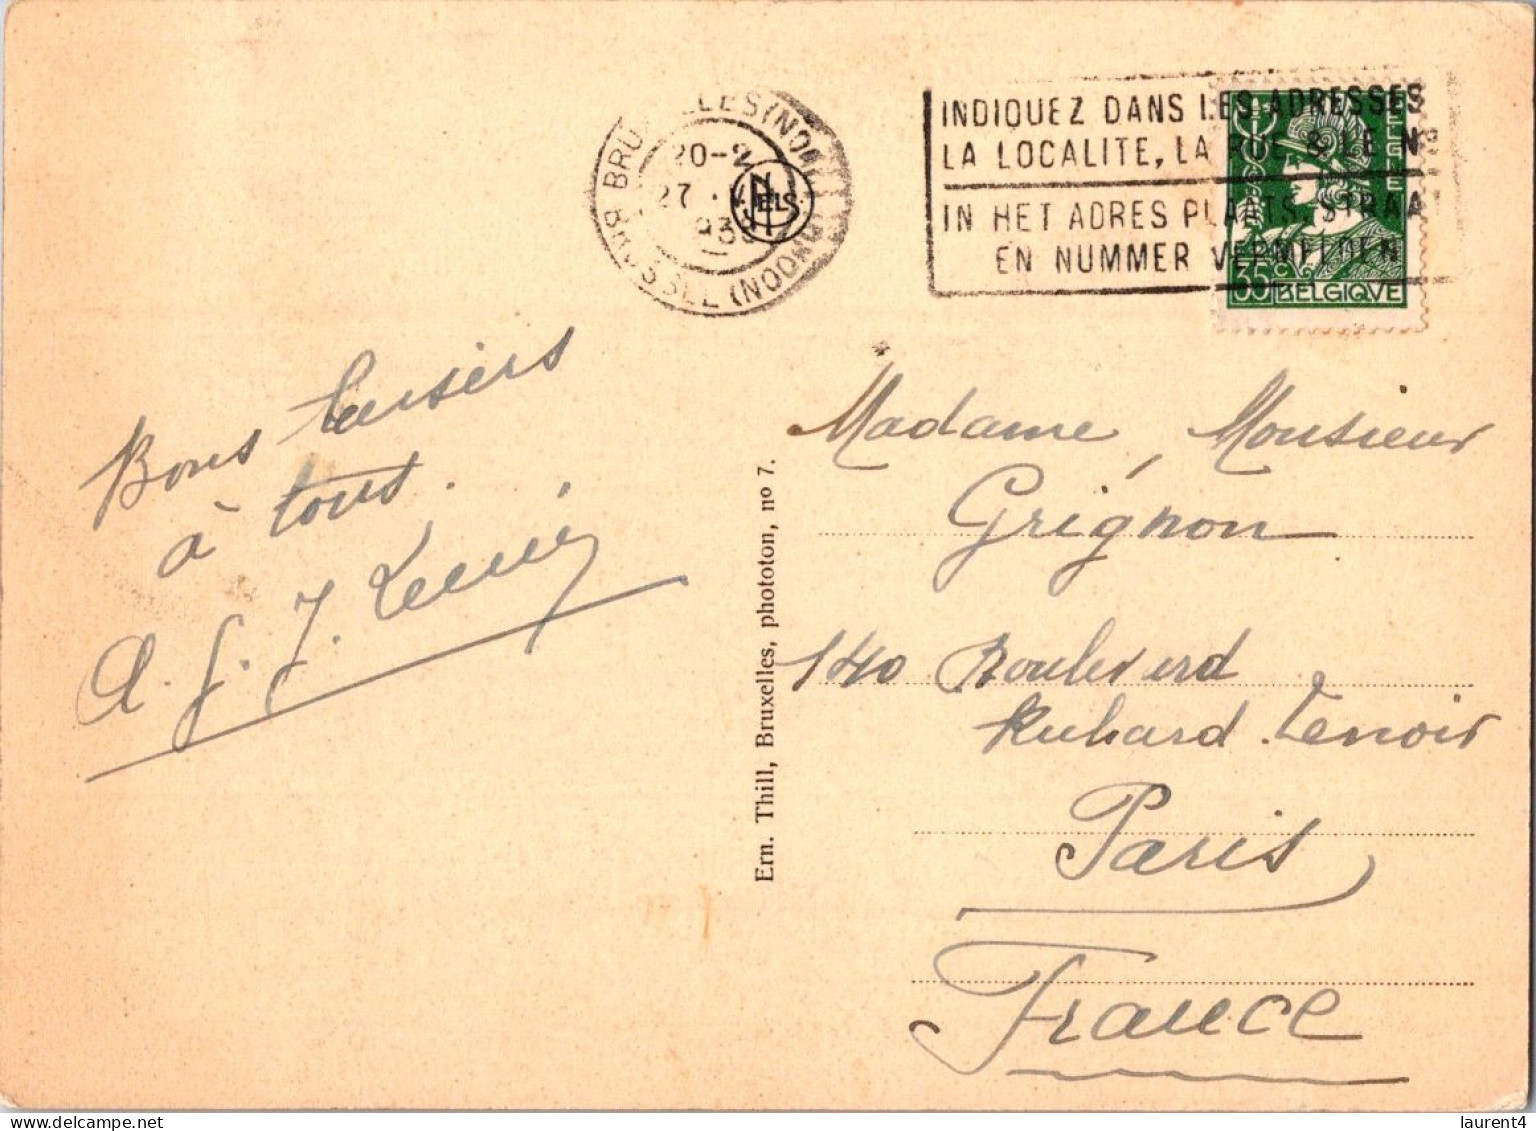 INDIQUEZ DANS LES ADRESSES
LA LOCALITE, LA RUE & LE No
IN HET ADRES PLAATS, STRAAT
EN NUMMER VERMELDEN
BRUXELLES (NORD)
20-2
27
193
BRUSSEL (NOORD)
NELS
BELGIE
35 c BELGIQVE
Bons baisers
à tous.
A. G. J.
Ern. Thill, Bruxelles, phototon, no 7.
Madame, Monsieur
Grignon
140 Boulevard
Richard Lenoir
Paris
France
laurent4